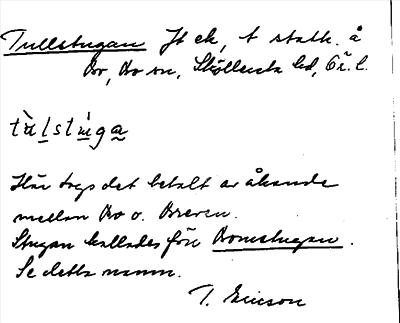 Tullstugan Jt ek, t statk. å
Bo, Bo sn, Sköllersta hd, Ör. l.
tùlstùga
Här togs det betalt av åkande
mellan Bo o. Breven.
Stugan kallades förr Bomstugan.
Se detta namn.
T. Ericson